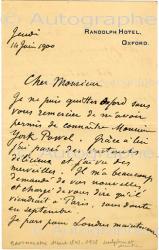 RANDOLPH HOTEL,
OXFORD.
Jeudi
14 Juin 1900
Cher Monsieur
Je ne puis quitter Oxford sans
vous remercier de m'avoir
permis de connaître Monsieur
York Powell. Grâce à lui
j'ai passé des instants
délicieux et j'ai vu des
merveilles. Il m'a beaucoup
demandé de vos nouvelles,
et chargé de vous dire qu'il
viendrait à Paris, sans doute
en septembre.
Je pars pour Londres maintenant